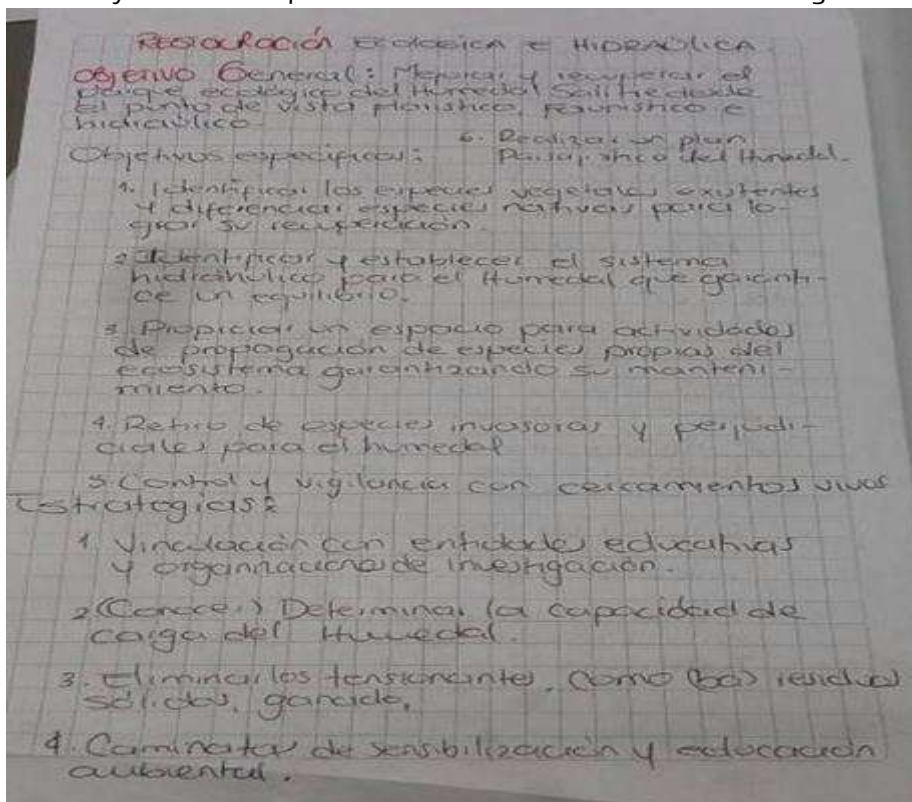 Restauración ecológica e HIDRAÚLICA
Objetivo General: Mejorar y recuperar el
parque ecológico del Humedal Salitre desde
El punto de vista florístico, faunístico e
hidraúlico.
Objetivos específicos:
6. Realizar un plan
Paisajístico del Humedal.
1. Identificar las especies vegetales existentes
y diferenciar especies nativas para lo-
grar su recuperación.
2. Identificar y establecer el sistema
hidraúlico para el Humedal que garanti-
ce un equilibrio.
3. Propiciar un espacio para actividades
de propagación de especies propias del
ecosistema garantizando su manteni-
miento.
4. Retiro de especies invasoras y perjudi-
ciales para el humedal
5. Control y vigilancia con cercamientos vivos
Estrategias:
1 Vinculación con entidades educativas
y organizaciones de investigación.
2 (Conocer) Determinar la capacidad de
carga del Humedal.
3. Eliminar los tensionantes, como residuos
sólidos, ganado,
4. Caminatas de sensibilización y educación
ambiental.